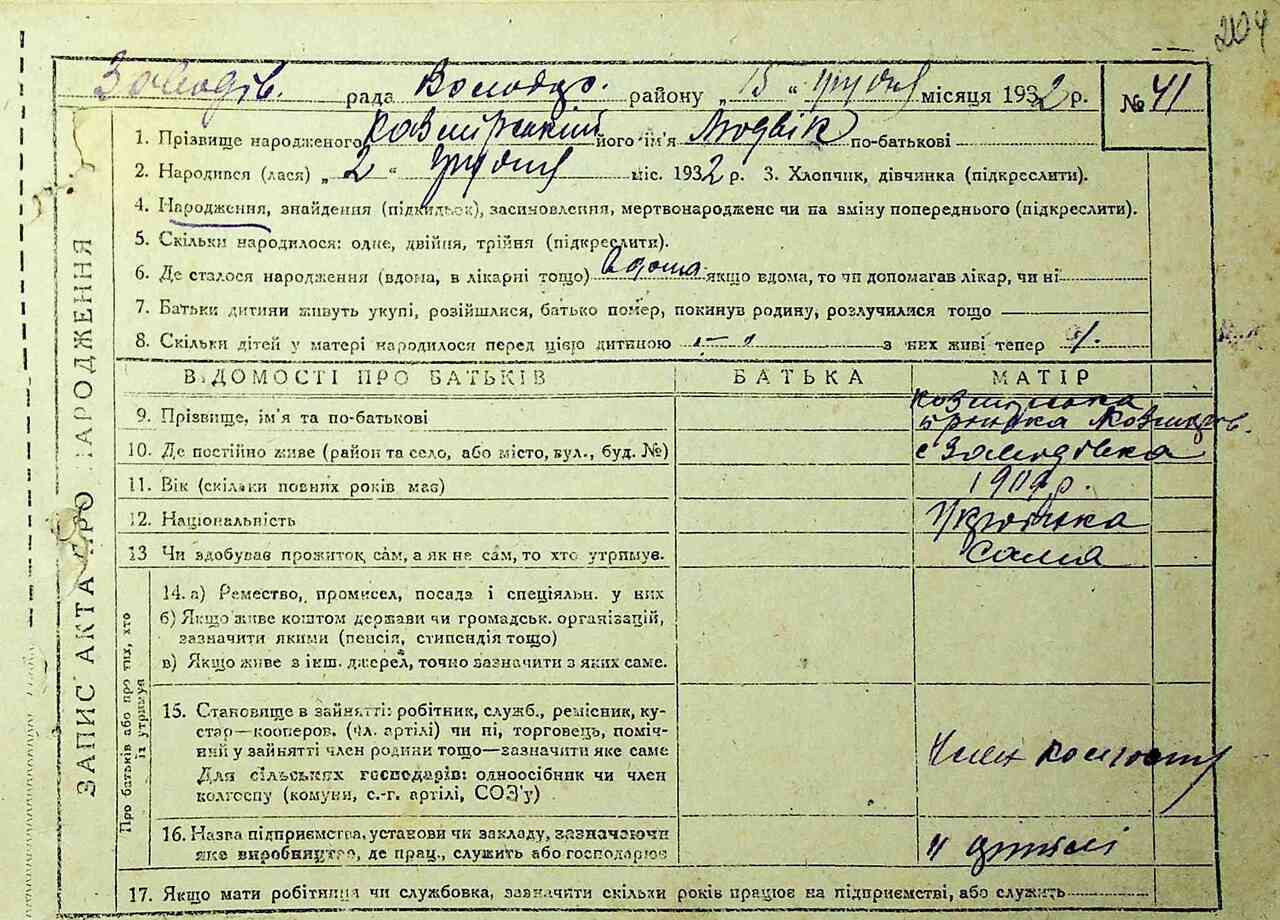 204
рада Володар. району „ 15 “ грудня місяця 1932 р. № 41
1. Прізвище народженого його ім'я Людвік по-батькові
2. Народився (лася) „ 2 “ грудня міс. 1932 р. 3. Хлопчик, дівчинка (підкреслити).
4. Народження, знайдення (підкидьок), засиновлення, мертвонароджене чи на зміну попереднього (підкреслити).
5. Скільки народилося: одне, двійня, трійня (підкреслити).
6. Де сталося народження (вдома, в лікарні тощо) вдома якщо вдома, то чи допомагав лікар, чи ні
7. Батьки дитини живуть укупі, розійшлися, батько помер, покинув родину, розлучилися тощо
8. Скільки дітей у матері народилося перед цією дитиною з них живі тепер
ЗАПИС АКТА ПРО НАРОДЖЕННЯ
ВІДОМОСТІ ПРО БАТЬКІВ БАТЬКА МАТІР
9. Прізвище, ім'я та по-батькові
10. Де постійно живе (район та село, або місто, вул., буд. №) с
11. Вік (скільки повних років має) 1909 р.
12. Національність Українка
13 Чи здобував прожиток сам, а як не сам, то хто утримув. сама
Про батьків або про тих, хто їх утримує
14. а) Ремество, промисел, посада і спеціяльн. у них
б) Якщо живе коштом держави чи громадськ. організацій,
зазначити якими (пенсія, стипендія тощо)
в) Якщо живе з інш. джерел, точно зазначити з яких саме.
15. Становище в зайнятті: робітник, служб., ремісник, ку-
стар—кооперов. (чл. артілі) чи ні, торговець, поміч-
ний у зайнятті член родини тощо—зазначити яке саме
Член колгоспу
Для сільських господарів: одноосібник чи член
колгоспу (комуни, с.-г. артілі, СОЗ'у)
16. Назва підприємства, установи чи закладу, зазначаючи
яке виробництво, де прац., служить або господарює артілі
17. Якщо мати робітниця чи службовка, зазначити скільки років працює на підприємстві, або служить